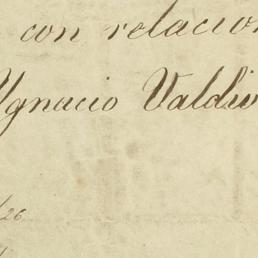 con relacion
Ygnacio Valdiv
/26